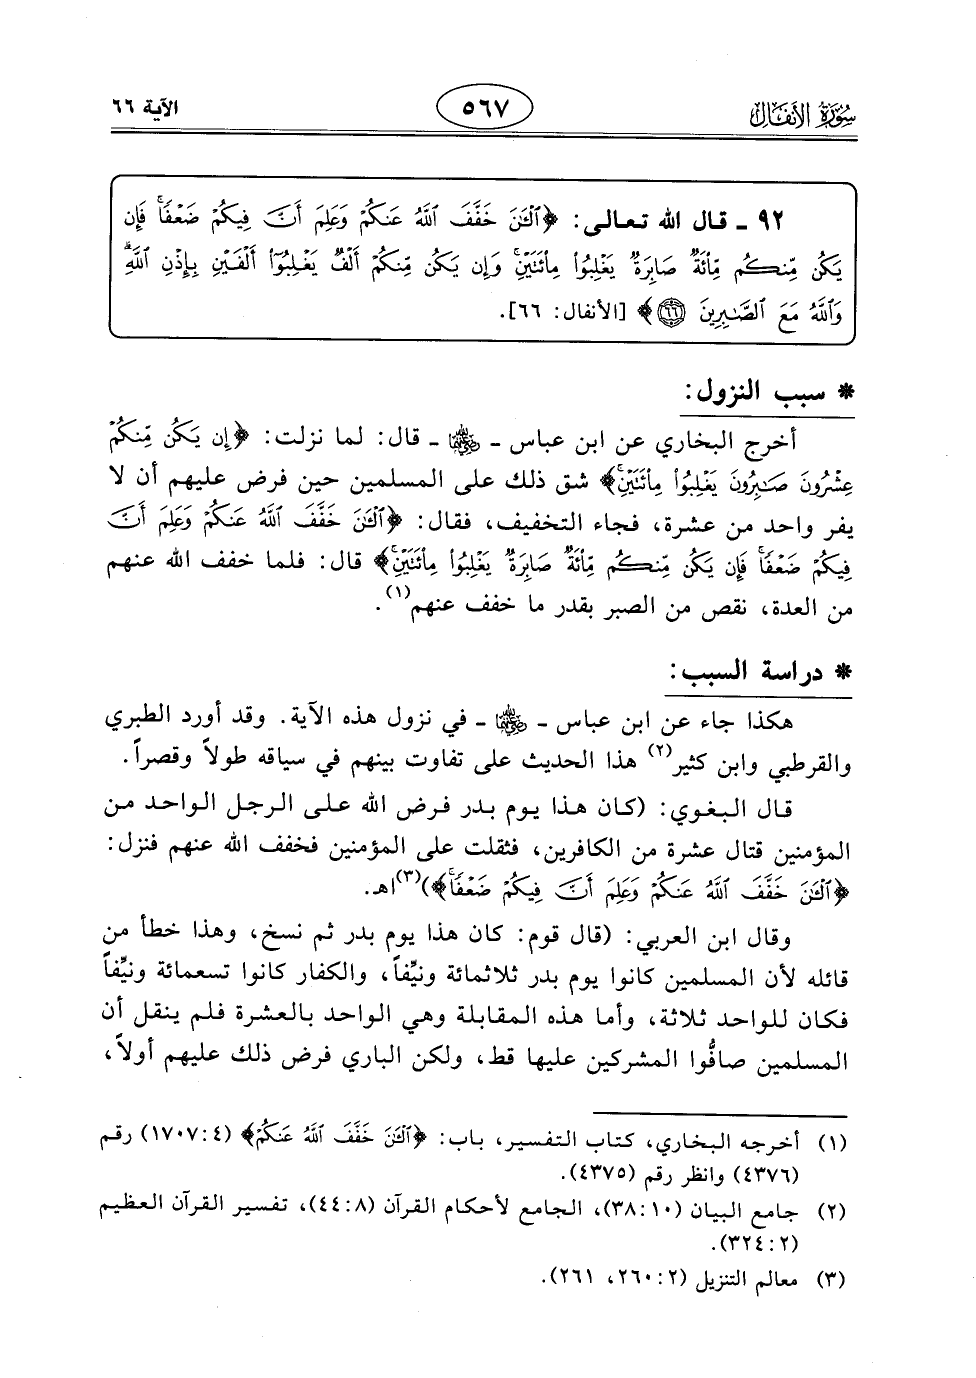 سورة الأنفال
٥٦٧
الآية ٦٦
٩٢ ـ قال الله تعالى: ﴿ٱلْـَٰٔنَ خَفَّفَ ٱللَّهُ عَنكُمْ وَعَلِمَ أَنَّ فِيكُمْ ضَعْفًا ۚ فَإِن
يَكُن مِّنكُم مِّا۟ئَةٌ صَابِرَةٌ يَغْلِبُوا۟ مِا۟ئَتَيْنِ ۚ وَإِن يَكُن مِّنكُمْ أَلْفٌ يَغْلِبُوٓا۟ أَلْفَيْنِ بِإِذْنِ ٱللَّهِ ۗ
وَٱللَّهُ مَعَ ٱلصَّـٰبِرِينَ ٦٦﴾ [الأنفال: ٦٦].
* سبب النزول:
أخرج البخاري عن ابن عباس ـ رضي الله عنهما ـ قال: لما نزلت: ﴿إِن يَكُن مِّنكُمْ
عِشْرُونَ صَـٰبِرُونَ يَغْلِبُوا۟ مِا۟ئَتَيْنِ ۚ﴾ شق ذلك على المسلمين حين فرض عليهم أن لا
يفر واحد من عشرة، فجاء التخفيف، فقال: ﴿ٱلْـَٰٔنَ خَفَّفَ ٱللَّهُ عَنكُمْ وَعَلِمَ أَنَّ
فِيكُمْ ضَعْفًا ۚ فَإِن يَكُن مِّنكُم مِّا۟ئَةٌ صَابِرَةٌ يَغْلِبُوا۟ مِا۟ئَتَيْنِ ۚ﴾ قال: فلما خفف الله عنهم
من العدة، نقص من الصبر بقدر ما خفف عنهم(١).
* دراسة السبب:
هكذا جاء عن ابن عباس ـ رضي الله عنهما ـ في نزول هذه الآية. وقد أورد الطبري
والقرطبي وابن كثير(٢) هذا الحديث على تفاوت بينهم في سياقه طولاً وقصراً.
قال البغوي: (كان هذا يوم بدر فرض الله على الرجل الواحد من
المؤمنين قتال عشرة من الكافرين، فثقلت على المؤمنين فخفف الله عنهم فنزل:
﴿ٱلْـَٰٔنَ خَفَّفَ ٱللَّهُ عَنكُمْ وَعَلِمَ أَنَّ فِيكُمْ ضَعْفًا ۚ﴾)(٣)اهـ.
وقال ابن العربي: (قال قوم: كان هذا يوم بدر ثم نسخ، وهذا خطأ من
قائله لأن المسلمين كانوا يوم بدر ثلاثمائة ونيِّفاً، والكفار كانوا تسعمائة ونيِّفاً
فكان للواحد ثلاثة، وأما هذه المقابلة وهي الواحد بالعشرة فلم ينقل أن
المسلمين صافُّوا المشركين عليها قط، ولكن الباري فرض ذلك عليهم أولاً،
(١) أخرجه البخاري، كتاب التفسير، باب: ﴿ٱلْـَٰٔنَ خَفَّفَ ٱللَّهُ عَنكُمْ﴾ (٤: ١٧٠٧) رقم
(٤٣٧٦) وانظر رقم (٤٣٧٥).
(٢) جامع البيان (١٠: ٣٨)، الجامع لأحكام القرآن (٨: ٤٤)، تفسير القرآن العظيم
(٢: ٣٢٤).
(٣) معالم التنزيل (٢: ٢٦٠، ٢٦١).